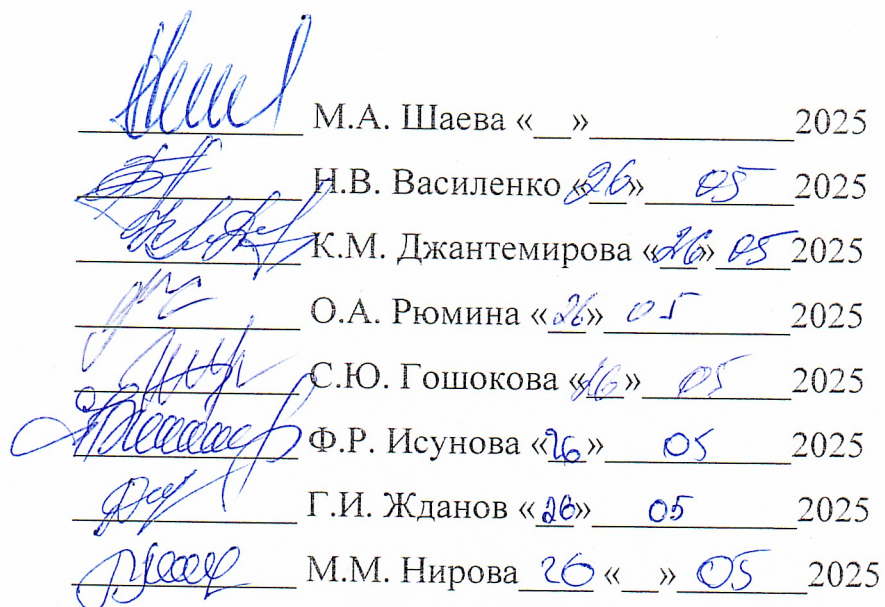 М.А. Шаева «__»___________2025
Н.В. Василенко «26» 05 2025
К.М. Джантемирова «26» 05 2025
О.А. Рюмина «26» 05 2025
С.Ю. Гошокова «26» 05 2025
Ф.Р. Исунова «26» 05 2025
Г.И. Жданов «26» 05 2025
М.М. Нирова 26 «__» 05 2025